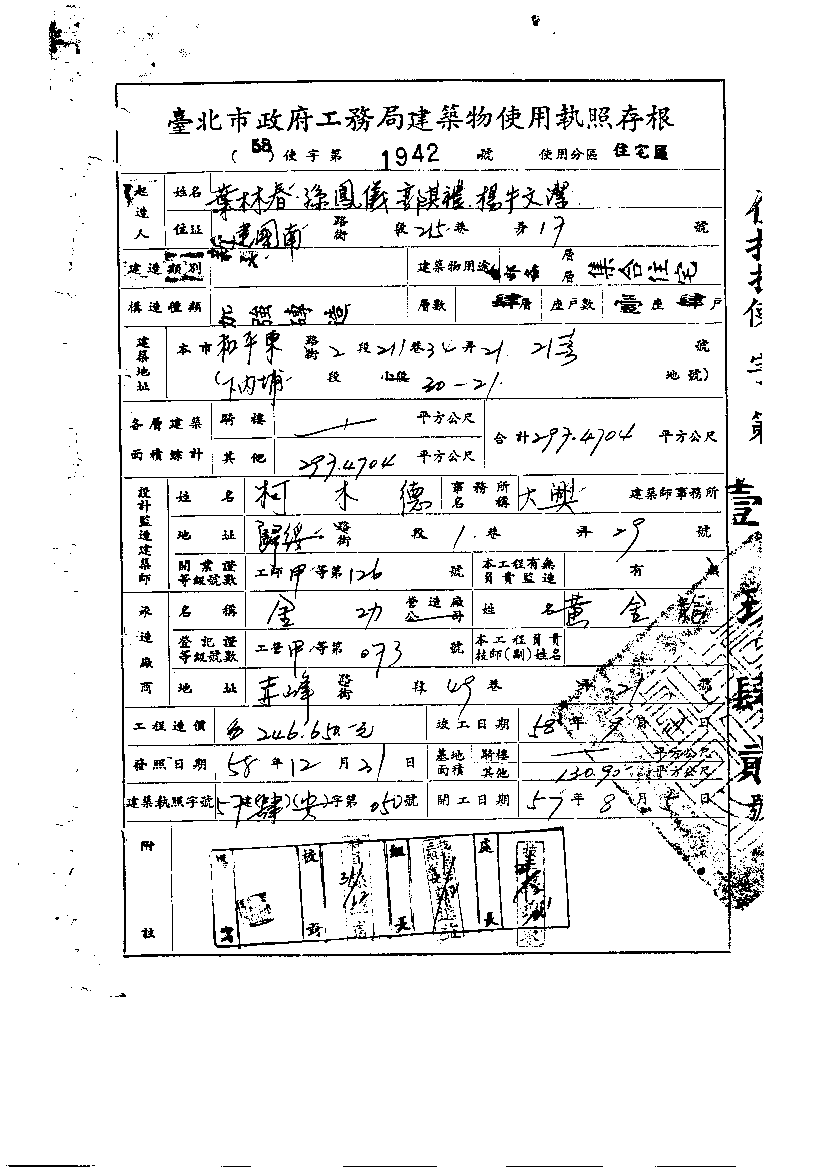 臺北市政府工務局建築物使用執照存根
(58) 使字第 1942 號 使用分區 住宅區
起造人 姓名 葉林春 孫鳳儀 郭淇禮 楊牛文潔
住址 建國南 路街 段 215 巷 弄 17 號
建造類別 建築物用途 層層 集合住宅
構造種類 加強磚造 層數 肆層 座戶數 壹座 肆戶
建築地址 本市 和平東 路街 2 段 211 巷 34 弄 21 號
(下內埔 段 小段 30-21 地號)
各層建築面積總計 騎樓 平方公尺 合計 297.4704 平方公尺
其他 297.4704 平方公尺
設計監造建築師 姓名 柯木德 事務所名稱 大興 建築師事務所
地址 歸綏 路街 段 1 巷 弄 29 號
開業證等級號數 工師甲等第 126 號 本工程有無負責監造 有 無
承造廠商 名稱 金功 營造廠公司 姓名 黃金龍
登記證等級號數 工營甲等第 073 號 本工程負責技師(副)姓名
地址 赤峰 路街 段 49 巷 弄 21 號
工程造價 246.650.元 竣工日期 58 年 9 月 日
發照日期 58 年 12 月 31 日 基地面積 騎樓 平方公尺
其他 130.90 平方公尺
建築執照字號 57 建(肆)(央)字第 050 號 開工日期 57 年 8 月 5 日
附註
校對 組長 處長
使字第壹玖肆貳號